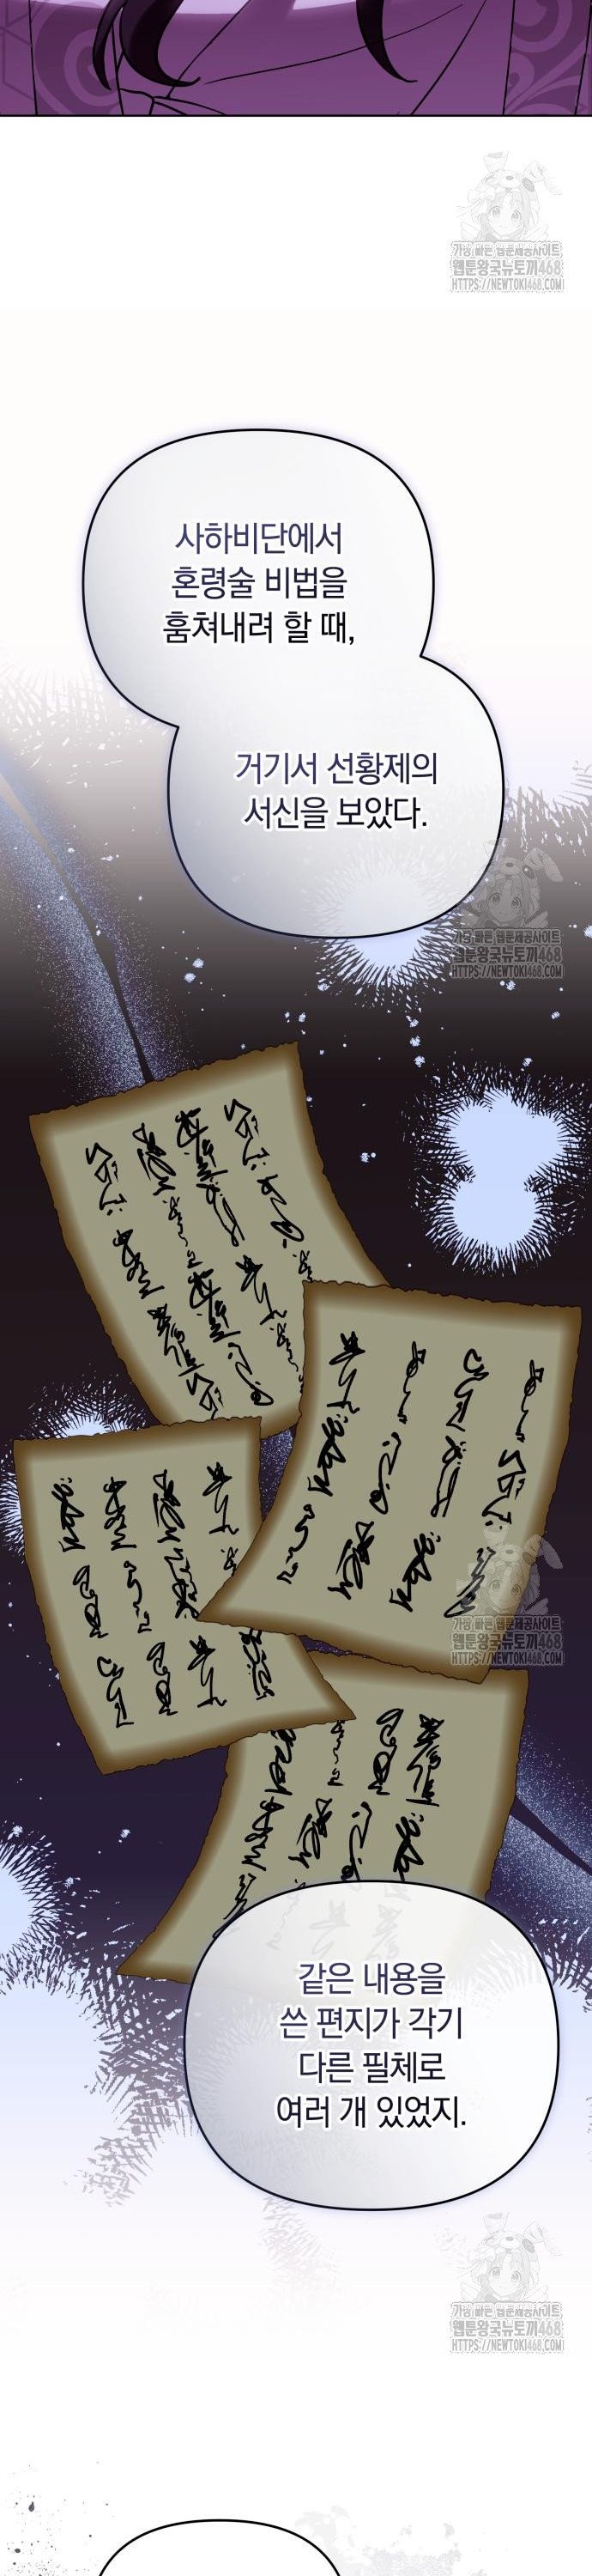 가장 빠른 웹툰제공사이트
웹툰왕국뉴토끼468
HTTPS://NEWTOKI468.COM
사하비단에서
혼령술 비법을
훔쳐내려 할 때,
거기서 선황제의
서신을 보았다.
가장 빠른 웹툰제공사이트
웹툰왕국뉴토끼468
HTTPS://NEWTOKI468.COM
가장 빠른 웹툰제공사이트
웹툰왕국뉴토끼468
HTTPS://NEWTOKI468.COM
같은 내용을
쓴 편지가 각기
다른 필체로
여러 개 있었지.
가장 빠른 웹툰제공사이트
웹툰왕국뉴토끼468
HTTPS://NEWTOKI468.COM